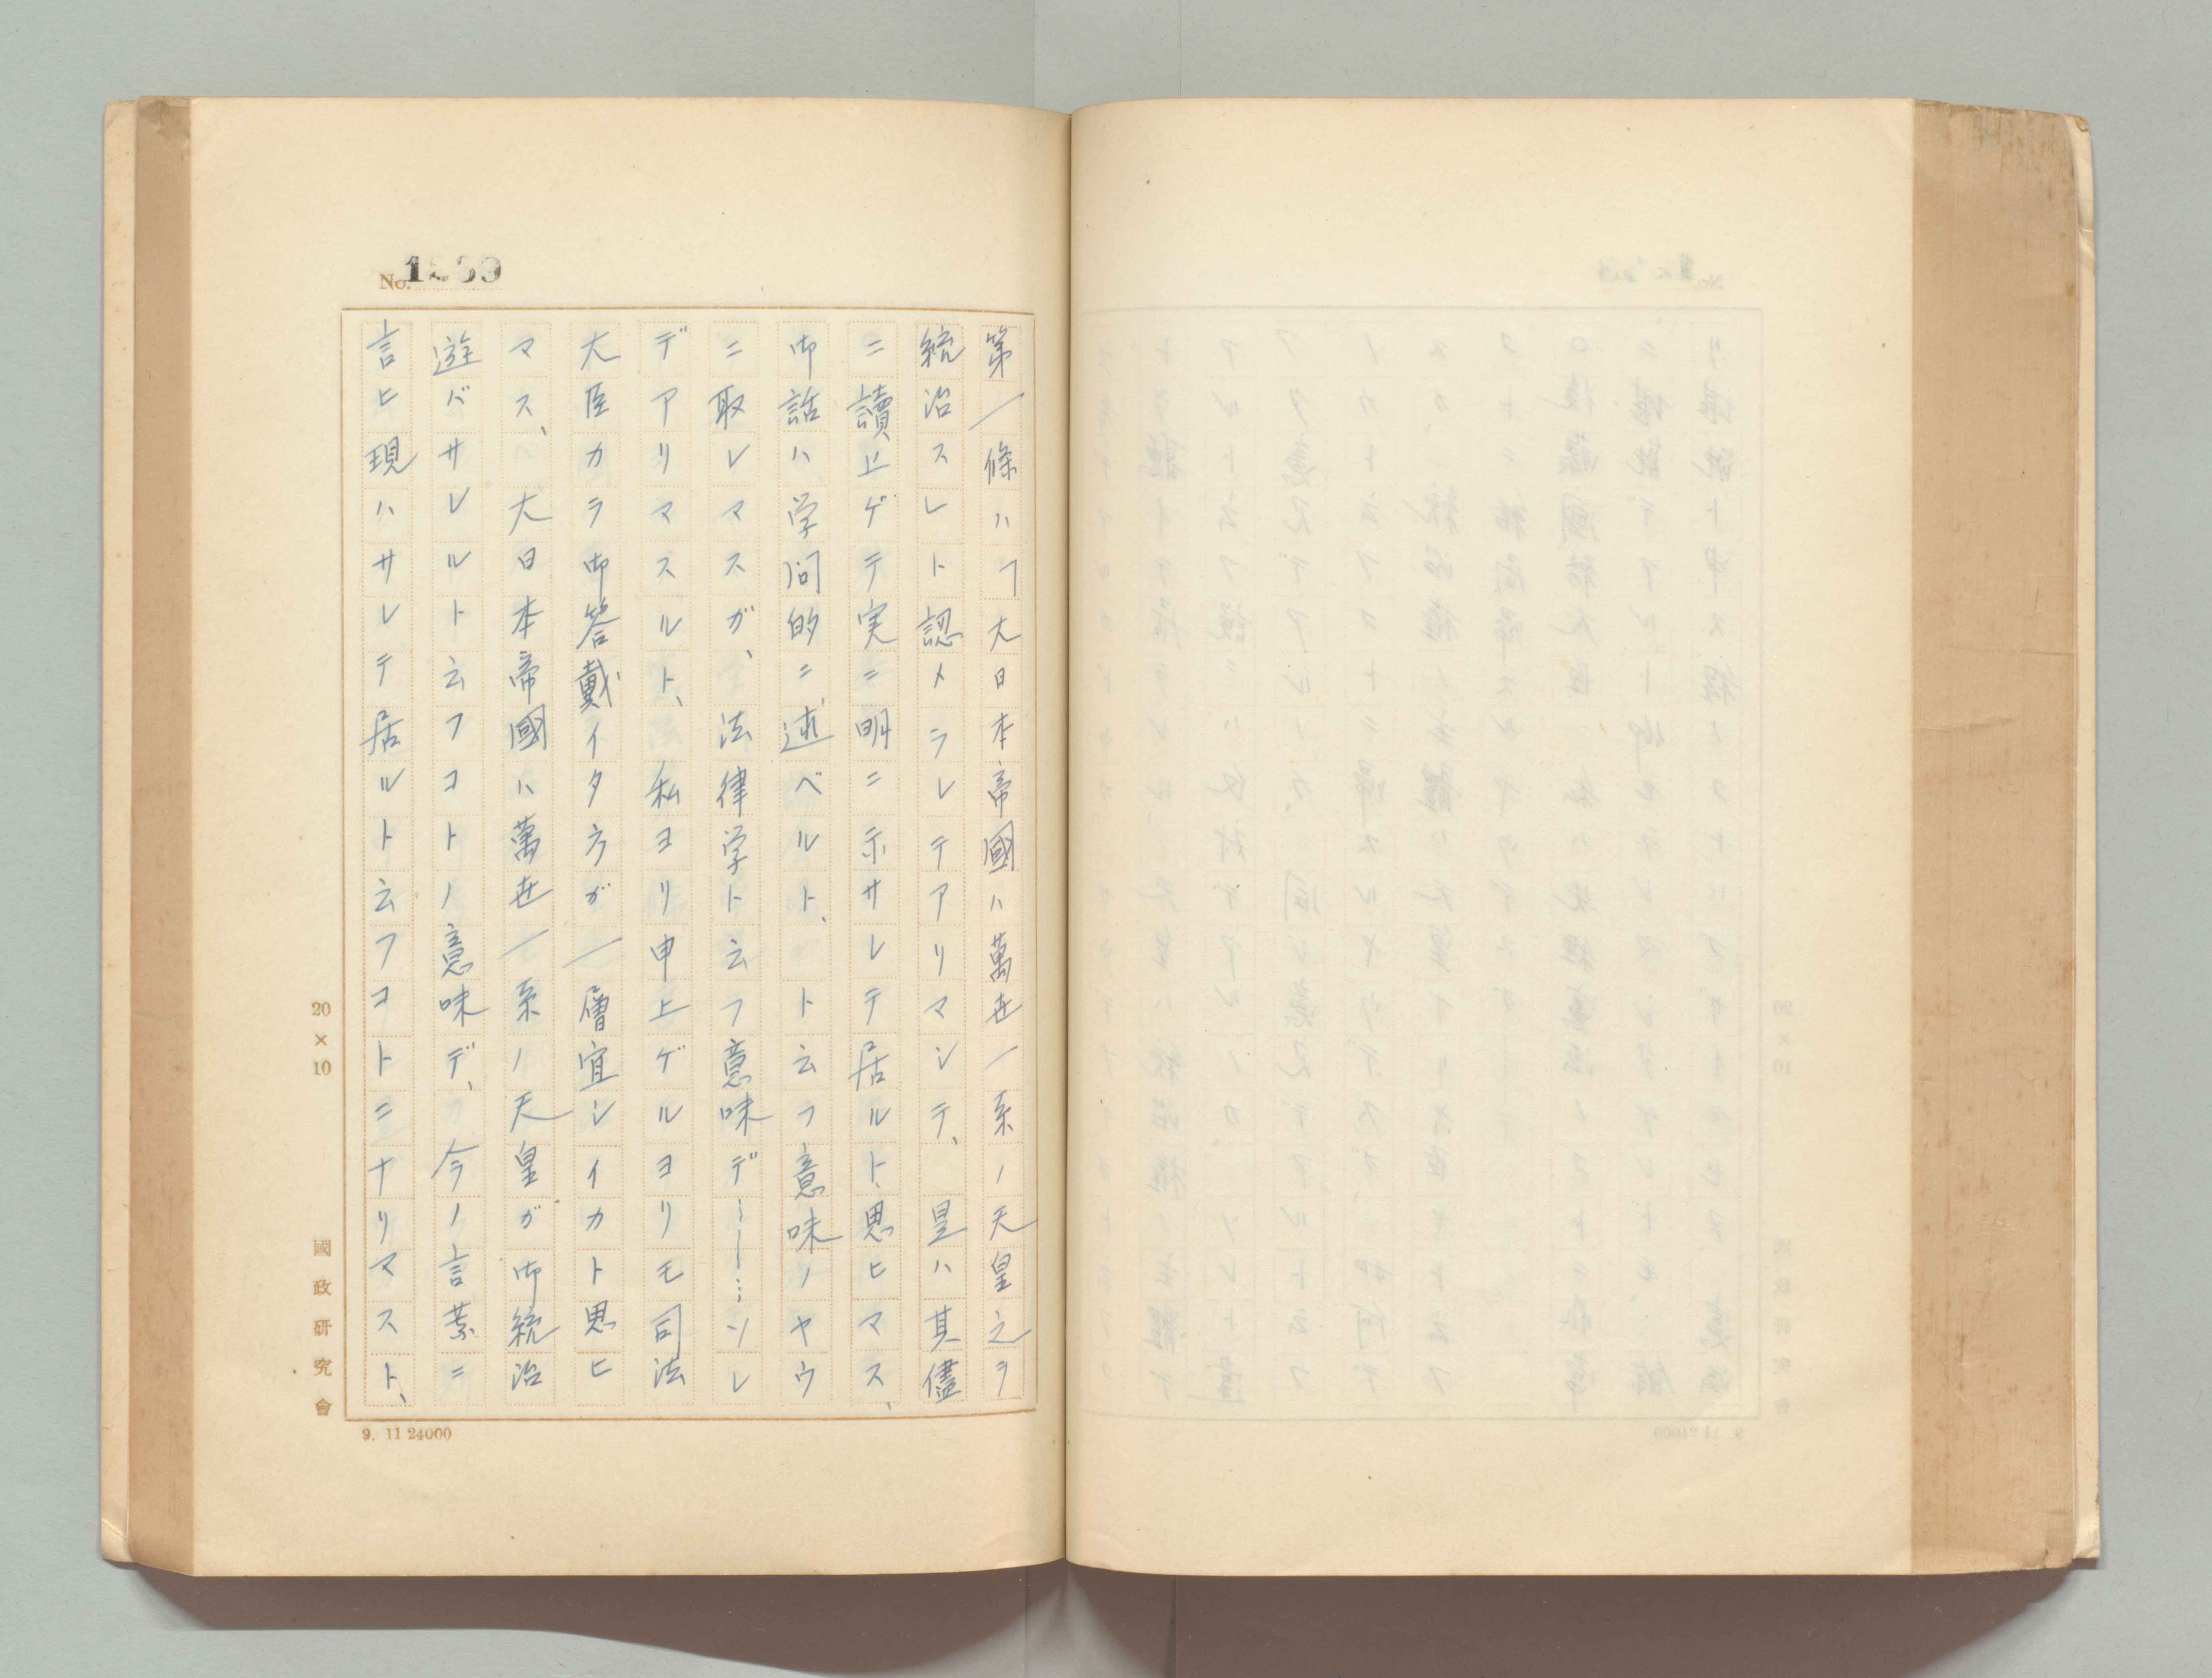 No.
第一條ハ「大日本帝國ハ萬世一系ノ天皇之ヲ
統治スレト認メラレテアリマシテ、是ハ其儘
ニ讀上ゲテ実ニ明ニ示サレテ居ルト思ヒマス、
御話ハ学問的ニ述ベルト、ト云フ意味ノヤウ
ニ取レマスガ、法律学ト云フ意味デ――……ソレ
デアリマスルト、私ヨリ申上ゲルヨリモ司法
大臣カラ御答戴イタ方ガ一層宜シイカト思ヒ
マス、大日本帝國ハ萬世一系ノ天皇ガ御統治
遊バサレルト云フコトノ意味デ、今ノ言葉ニ
言ヒ現ハサレテ居ルト云フコトニナリマスト、
20×10
國政研究會
9. 11 24000